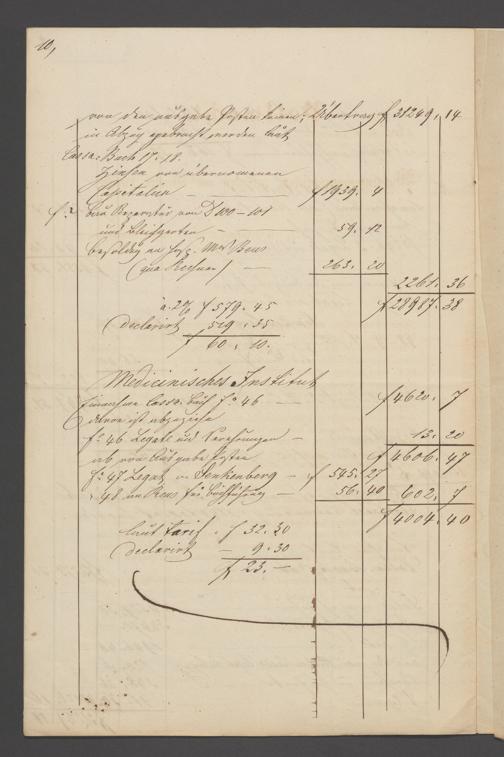 10,
von den ausgabe Posten können; Übertrag f 31249. 14
in Abzug gebracht werden laut
Cassa-Buch 17. 18.
Zinsen von übernommenen
Capitalien — f 1939. 4
100 - 101
und Bleichgarten — 59. 12
263. 20
2261. 36
a. 2% f 579. 45 f 28987. 38
declarirt 519. 35
f 60. 10.
Medicinisches Institut
Einnahme Cassa Buch f° 46 — f 4620. 7
davon ist abzuziehen
f° 46 Legate und — 13. 20
ab von Ausgabe Posten f 4606. 47
f° 47 Legat v. Senkenberg — f 545. 27
48 an Reus für Buchführung — 56. 40 602. 7
f 4004. 40
laut Tarif . f 32. 30
declarirt — 9. 30
f 23. —